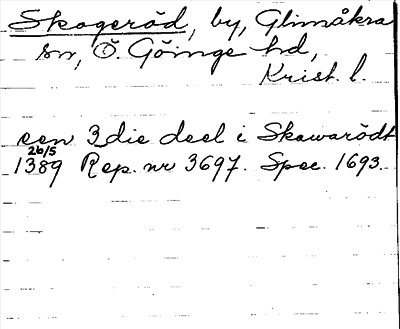 Skogeröd, by, Glimåkra
sn, Ö. Göinge hd,
Krist. l.
een 3die deel i Skawarödt
26/5
1389 Rep. nr 3697. Spec. 1693.